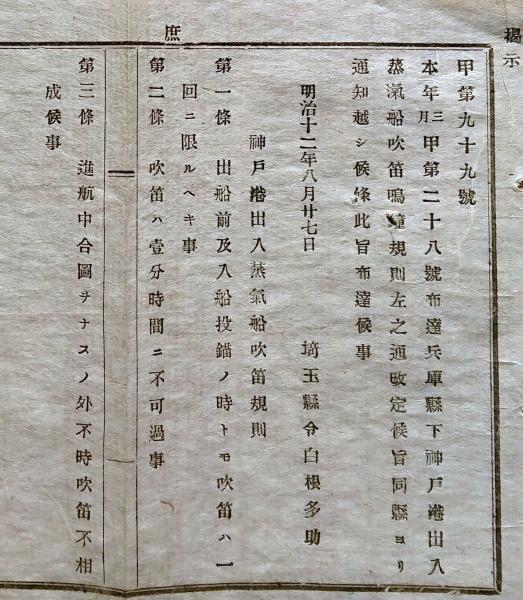 揭示
甲第九十九號
本年三月甲第二十八號布達兵庫縣下神戸港出入
蒸氣船吹笛鳴鐘規則左之通改定候旨同縣ヨリ
通知越シ候條此旨布達候事
明治十二年八月廿七日　埼玉縣令白根多助
神戸港出入蒸氣船吹笛規則
第一條　出船前及入船投錨ノ時トモ吹笛ハ一
回ニ限ルヘキ事
庶
第二條　吹笛ハ壹分時間ニ不可過事
第三條　進航中合圖ヲナスノ外不時吹笛不相
成候事